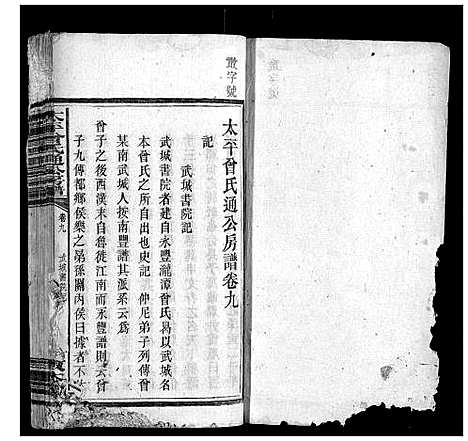 敦字號
太平曾氏通公房譜卷九
記
武城書院記
武城書院者建自永豐瀧潭曾氏曷以武城名
本曾氏之所自出也史記 仲尼弟子列傳曾
某南武城人按南豐譜其派系云爲
曾子之後西漢末自魯徙江南而永豐譜則云曾
子九傳都鄉侯樂之昂孫關內侯曰據者不
卷九